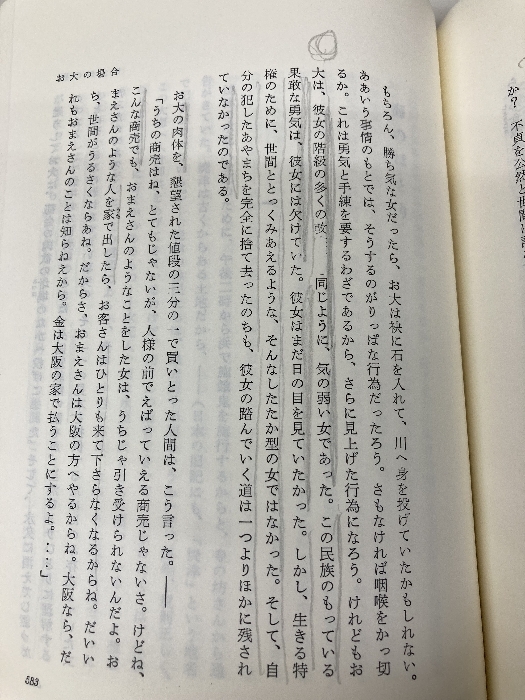 か? 不貞を公然と世間に
もちろん、勝ち気な女だったら、お大は袂に石を入れて、川へ身を投げていたかもしれない。
ああいう事情のもとでは、そうするのがりっぱな行為だったろう。さもなければ咽喉をかっ切
るか。これは勇気と手練を要するわざであるから、さらに見上げた行為になろう。けれどもお
大は、彼女の階級の多くの改 同じように、気の弱い女であった。この民族のもっている
果敢な勇気は、彼女には欠けていた。彼女はまだ日の目を見ていたかった。しかし、生きる特
権のために、世間ととっくみあえるような、そんなしたたか型の女ではなかった。そして、自
分の犯したあやまちを完全に捨て去ったのちも、彼女の踏んでいく道は一つよりほかに残され
ていなかったのである。
お大の肉体を、懇望された値段の三分の一で買いとった人間は、こう言った。――
「うちの商売はね、とてもじゃないが、人様の前でえばっていえる商売じゃないさ。けどね、
こんな商売でも、おまえさんのようなことをした女は、うちじゃ引き受けられないんだよ。お
まえさんのような人を家で出したら、お客さんはひとりも来て下さらなくなるからね。だいい
ち、世間がうるさくならあね。だからさ、おまえさんは大阪の方へやるからね。大阪なら、だ
れもおまえさんのことは知らねえから。金は大阪の家で払うことにするよ。…」
お大の場合
583